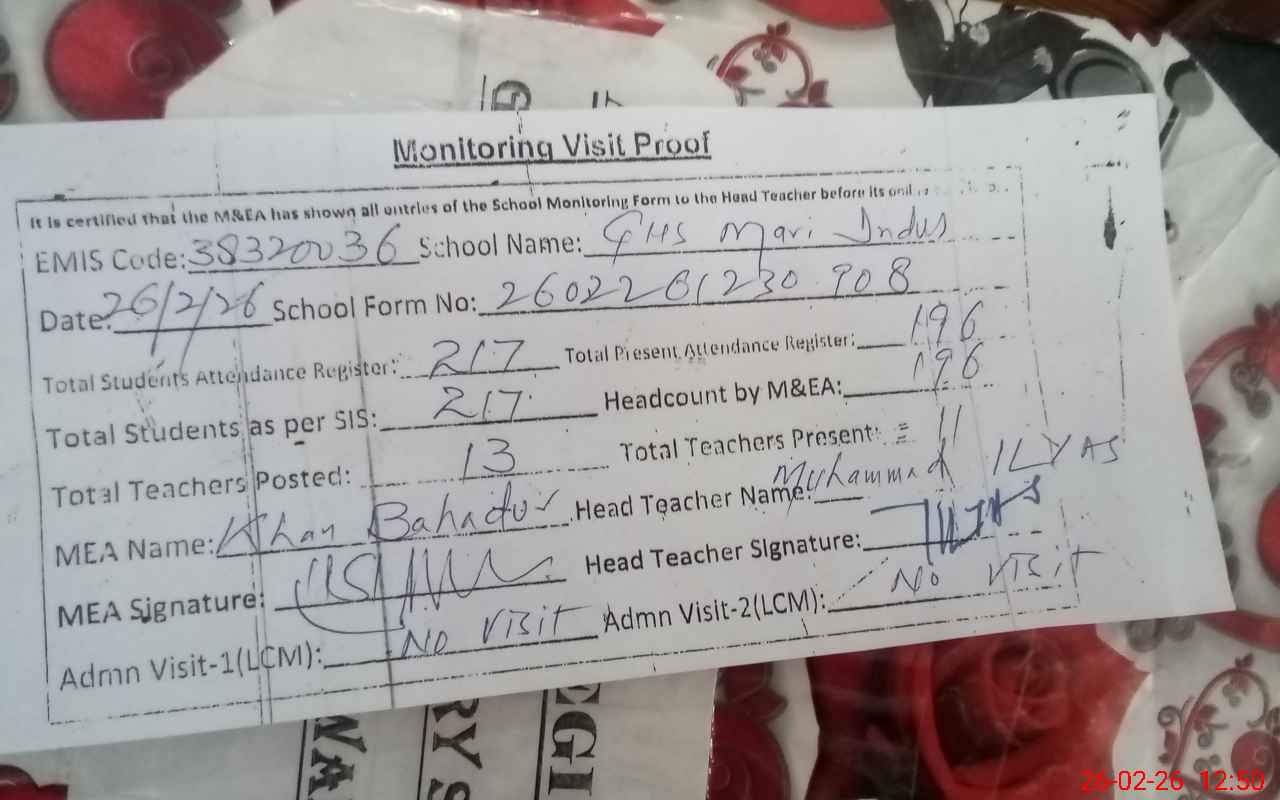 Monitoring Visit Proof
It is certified that the M&EA has shown all entries of the School Monitoring Form to the Head Teacher before its
EMIS Code: 38320036 School Name: GHS Mari Indus
Date: 26/2/26 School Form No: 2602261230908
Total Students Attendance Register: 217 Total Present Attendance Register: 196
Total Students as per SIS: 217 Headcount by M&EA: 196
Total Teachers Posted: 13 Total Teachers Present: = 11
MEA Name: Khan Bahadur Head Teacher Name: Muhammad ILYAS
MEA Signature: Head Teacher Signature:
Admn Visit-1(LCM): No Visit Admn Visit-2(LCM): No Visit
WA
RY S
EGI
26-02-26 12:50